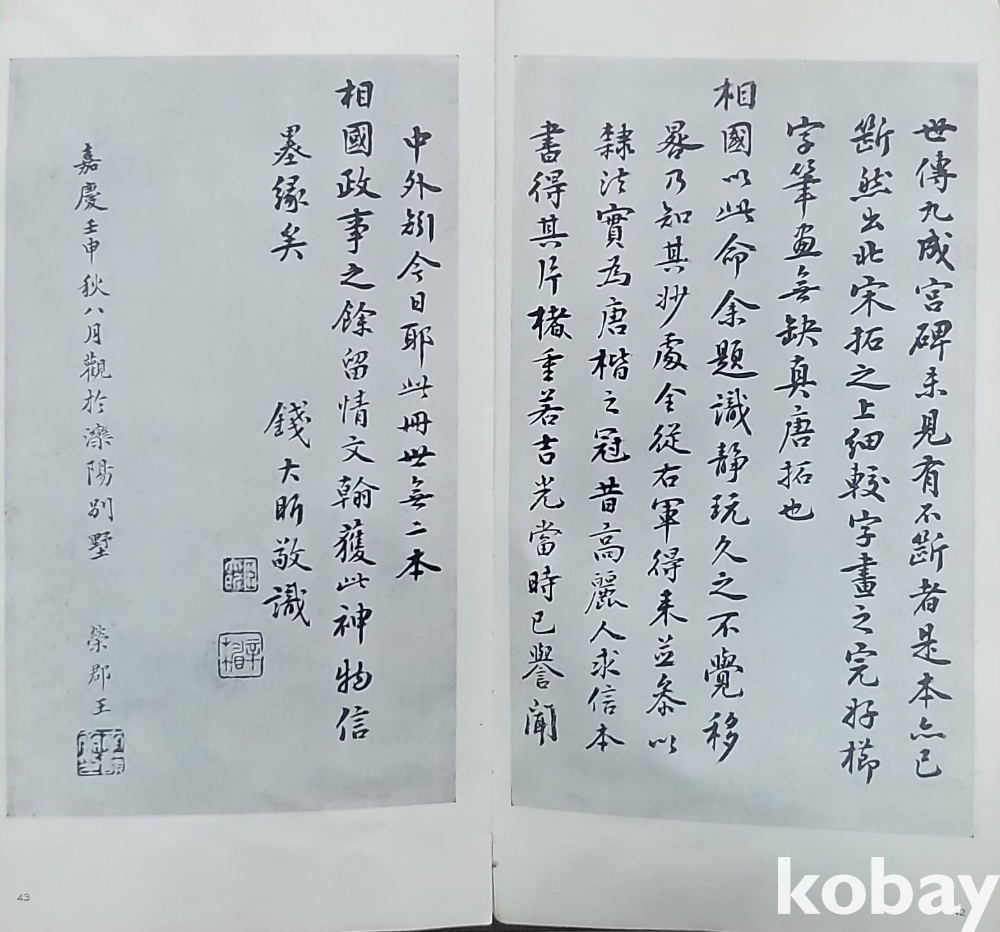 世傳九成宮碑未見有不斷者是本亦已
斷然出北宋拓之上細較字畫之完好櫛
字筆畫無缺真唐拓也
相國以此命余題識靜玩久之不覺移
晷乃知其妙處全從右軍得来並叅以
隸法實為唐楷之冠昔高麗人求信本
書得其片楮重若吉光當時已譽聞
中外矧今日耶此冊世無二本
相國政事之餘留情文翰獲此神物信
墨緣矣
錢大昕敬識
嘉慶壬申秋八月觀於灤陽別墅
榮郡王
43
42
kobay